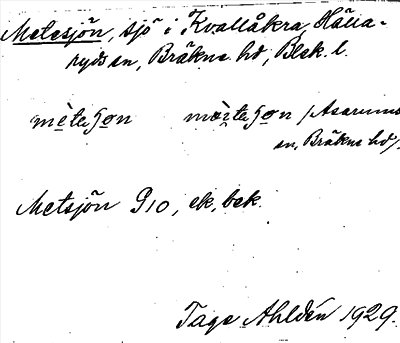 Metesjön, sjö i Kvallåkra, Hällaryds sn, Bräkne hd, Blek. l.
mètaʃo̲n mæ̀taʃo̲n /Asarums
sn, Bräkne hd/.
Metsjön G10, ek, bek.
Tage Ahldén 1929.